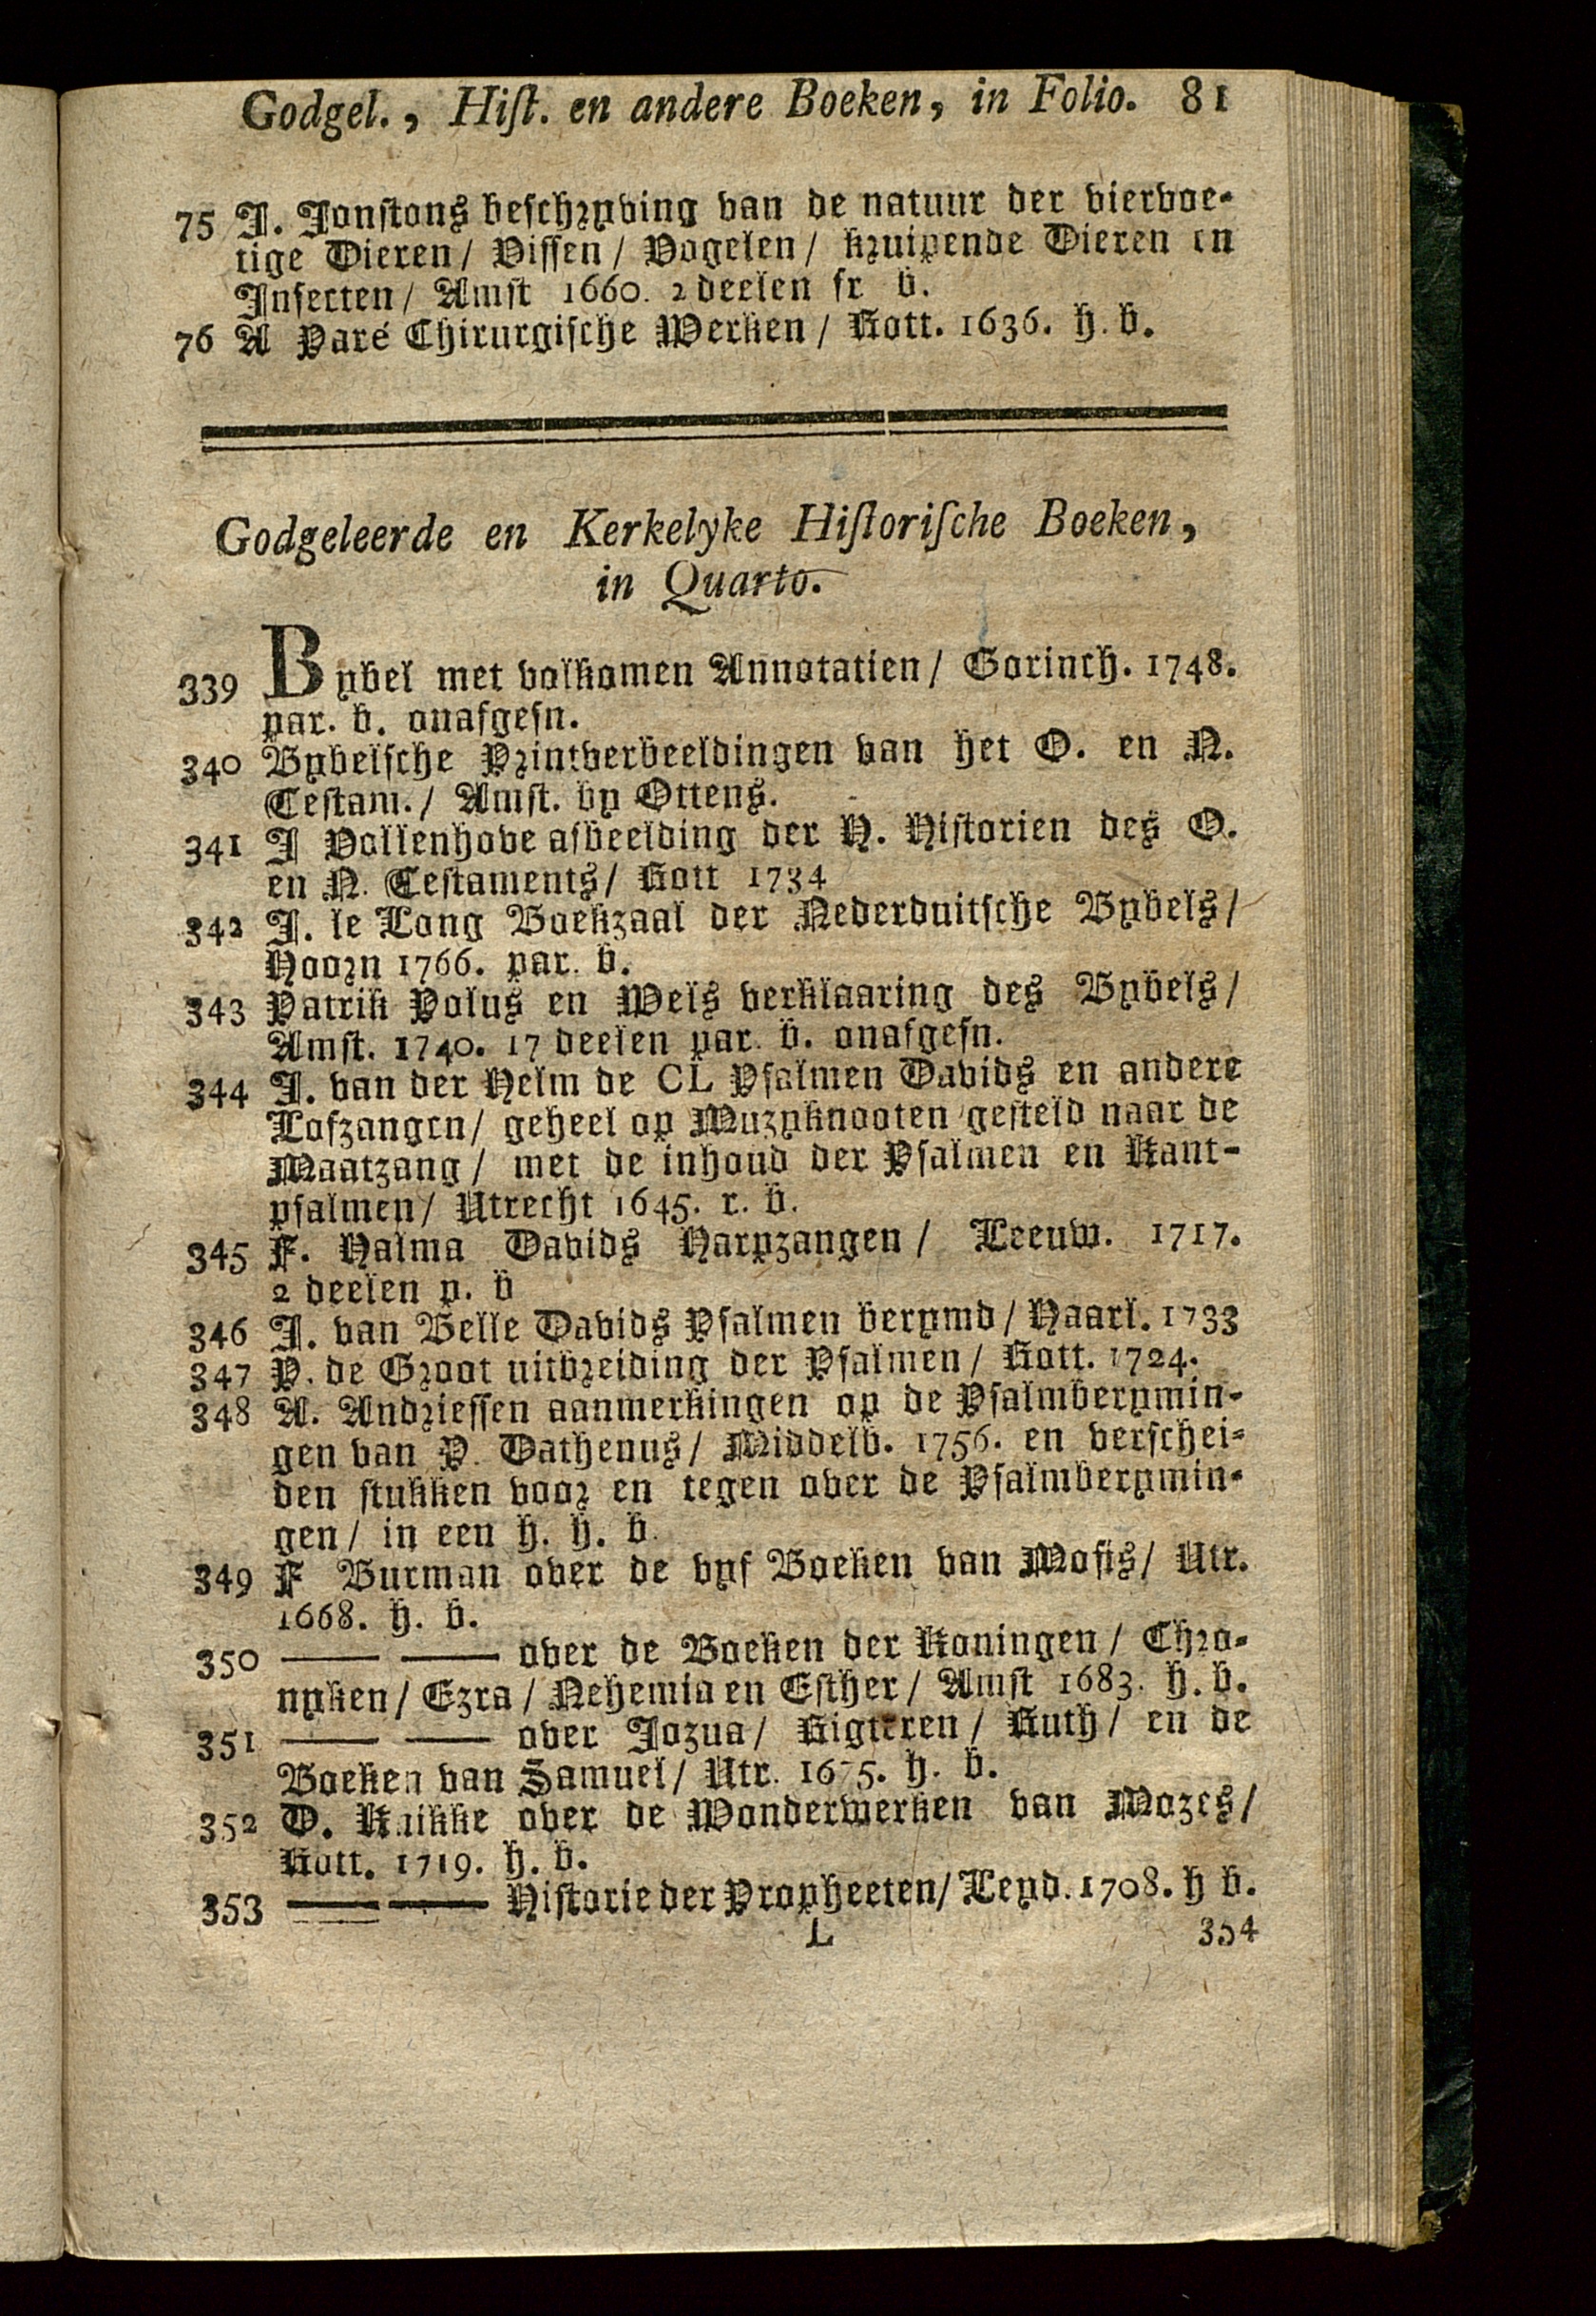 Godgel., Hiſt. en andere Boeken, in Folio. 81
75 J. Jonstons beschryving van de natuur der viervoe-
tige Dieren/ Vissen/ Vogelen/ kruipende Dieren en
Insecten/ Amst 1660. 2 deelen fr b.
76 A Paré Chirurgische Werken/ Rott. 1636. h. b.
Godgeleerde en Kerkelyke Hiſtoriſche Boeken,
in Quarto.
339 Bybel met volkomen Annotatien/ Gorinch. 1748.
par. b. onafgesn.
340 Bybelsche Printverbeeldingen van het O. en N.
Testam./ Amst. by Ottens.
341 J Vollenhove afbeelding der H. Historien des O.
en N. Testaments/ Rott 1734
342 J. le Long Boekzaal der Nederduitsche Bybels/
Hoorn 1766. par. b.
343 Patrik Polus en Wels verklaaring des Bybels/
Amst. 1740. 17 deelen par. b. onafgesn.
344 J. van der Helm de CL Psalmen Davids en andere
Lofzangen/ geheel op Muzyknooten gesteld naar de
Maatzang/ met de inhoud der Psalmen en Kant-
psalmen/ Utrecht 1645. r. b.
345 F. Halma Davids Harpzangen/ Leeuw. 1717.
2 deelen p. b
346 J. van Belle Davids Psalmen berymd/ Haarl. 1733
347 P. de Groot uitbreiding der Psalmen/ Rott. 1724.
348 A. Andriessen aanmerkingen op de Psalmberymin-
gen van P. Dathenus/ Middelb. 1756. en verschei-
den stukken voor en tegen over de Psalmberymin-
gen/ in een h. h. b.
349 F Burman over de vyf Boeken van Mosis/ Utr.
1668. h. b.
350 —— —— over de Boeken der Koningen/ Chro-
nyken/ Ezra/ Nehemia en Esther/ Amst 1683. h. b.
351 —— —— over Jozua/ Rigteren/ Ruth/ en de
Boeken van Samuel/ Utr. 1675. h. b.
352 D. Knikke over de Wonderwerken van Mozes/
Rott. 1719. h. b.
353 —— —— Historie der Propheeten/ Leyd. 1708. h b.
L 354